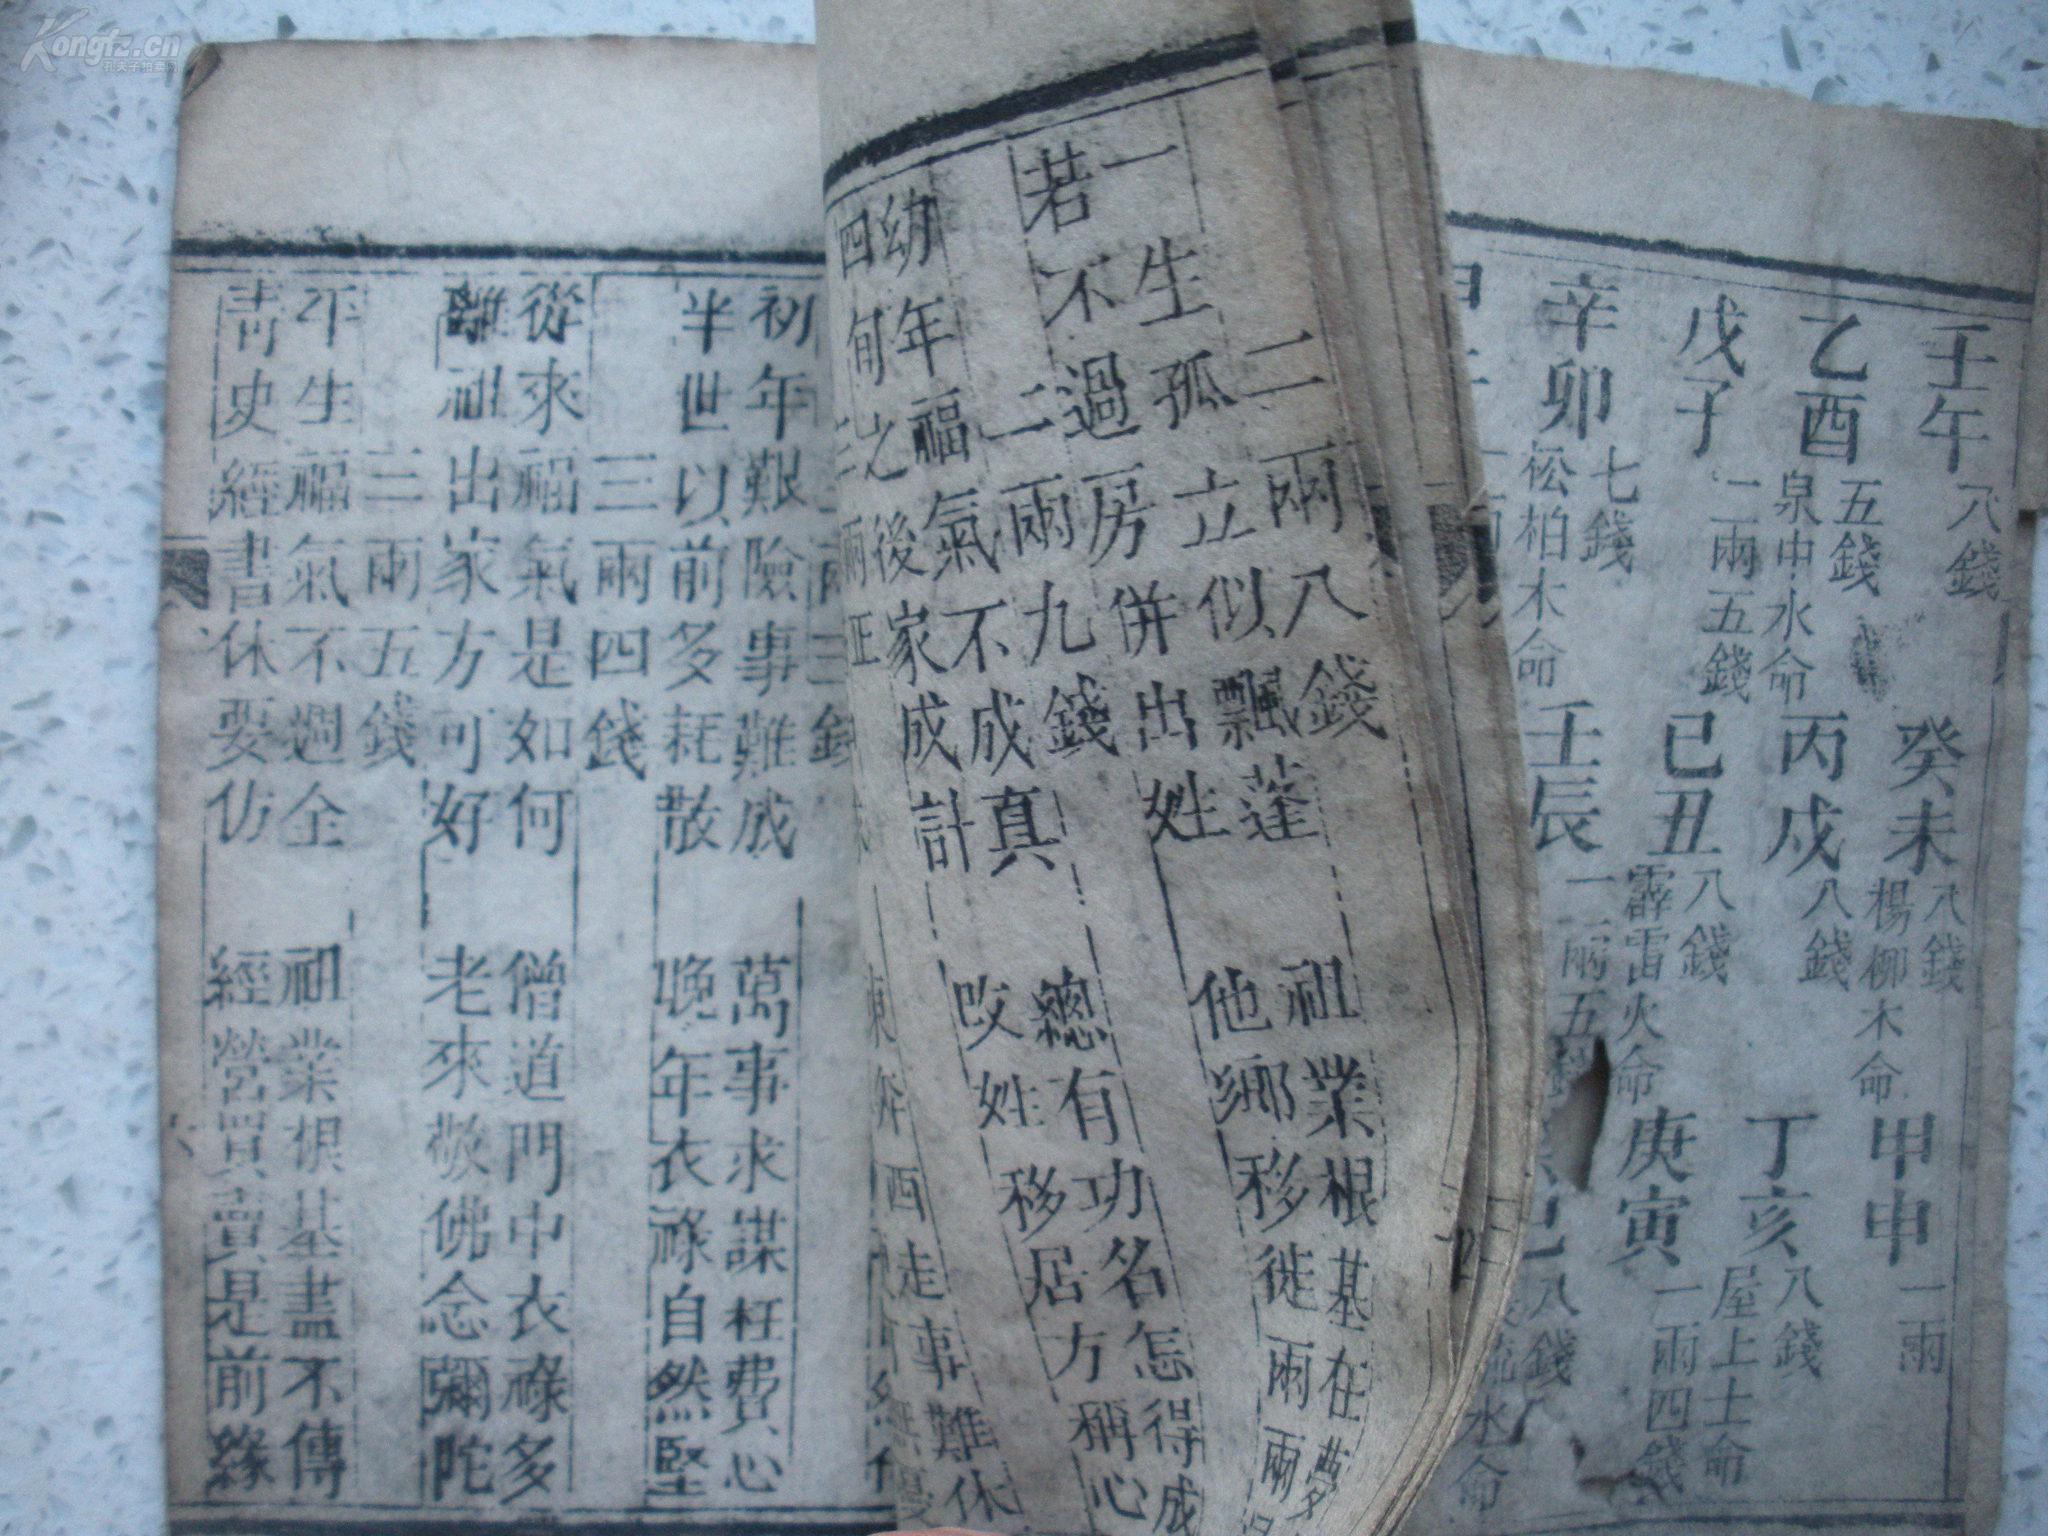 壬午 八錢 癸未 八錢 楊柳木命 甲申 一兩
乙酉 五錢 泉中水命 丙戌 八錢 丁亥 八錢 屋上土命
戊子 一兩五錢 己丑 八錢 霹雷火命 庚寅 一兩四錢
辛卯 七錢 松柏木命 壬辰 一兩五 八錢 水命
二兩八錢
一生孤立似飄蓬 祖業根基在夢
若不過房併出姓 他鄉移徙兩兩
二兩九錢
幼年福氣不成真 總有功名怎得成
四旬之後家成計 改姓移居方稱心
三兩正
東奔西走事難休
三兩三錢
初年艱險事難成 萬事求謀枉費心
半世以前多耗散 晚年衣祿自然堅
三兩四錢
從來福氣是如何 僧道門中衣祿多
離祖出家方可好 老來敬佛念彌陀
三兩五錢
平生福氣不週全 祖業根基盡不傳
青史經書休要仿 經營買賣是前緣
Kongfz.cn
孔夫子拍卖网